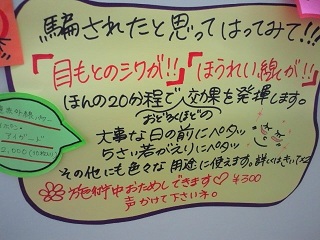 騙されたと思ってはってみて!!!
「目もとのシワが!!」「ほうれい線が!!」
ほんの20分程で効果を発揮します。
おどろくほどの
大事な日の前にペタッ
5さい若がえりにペタッ
その他にも色々な用途に使えます。詳しくはきいて
施術中おためしできます♡ ¥300
声かけて下さいネ。
アイガード